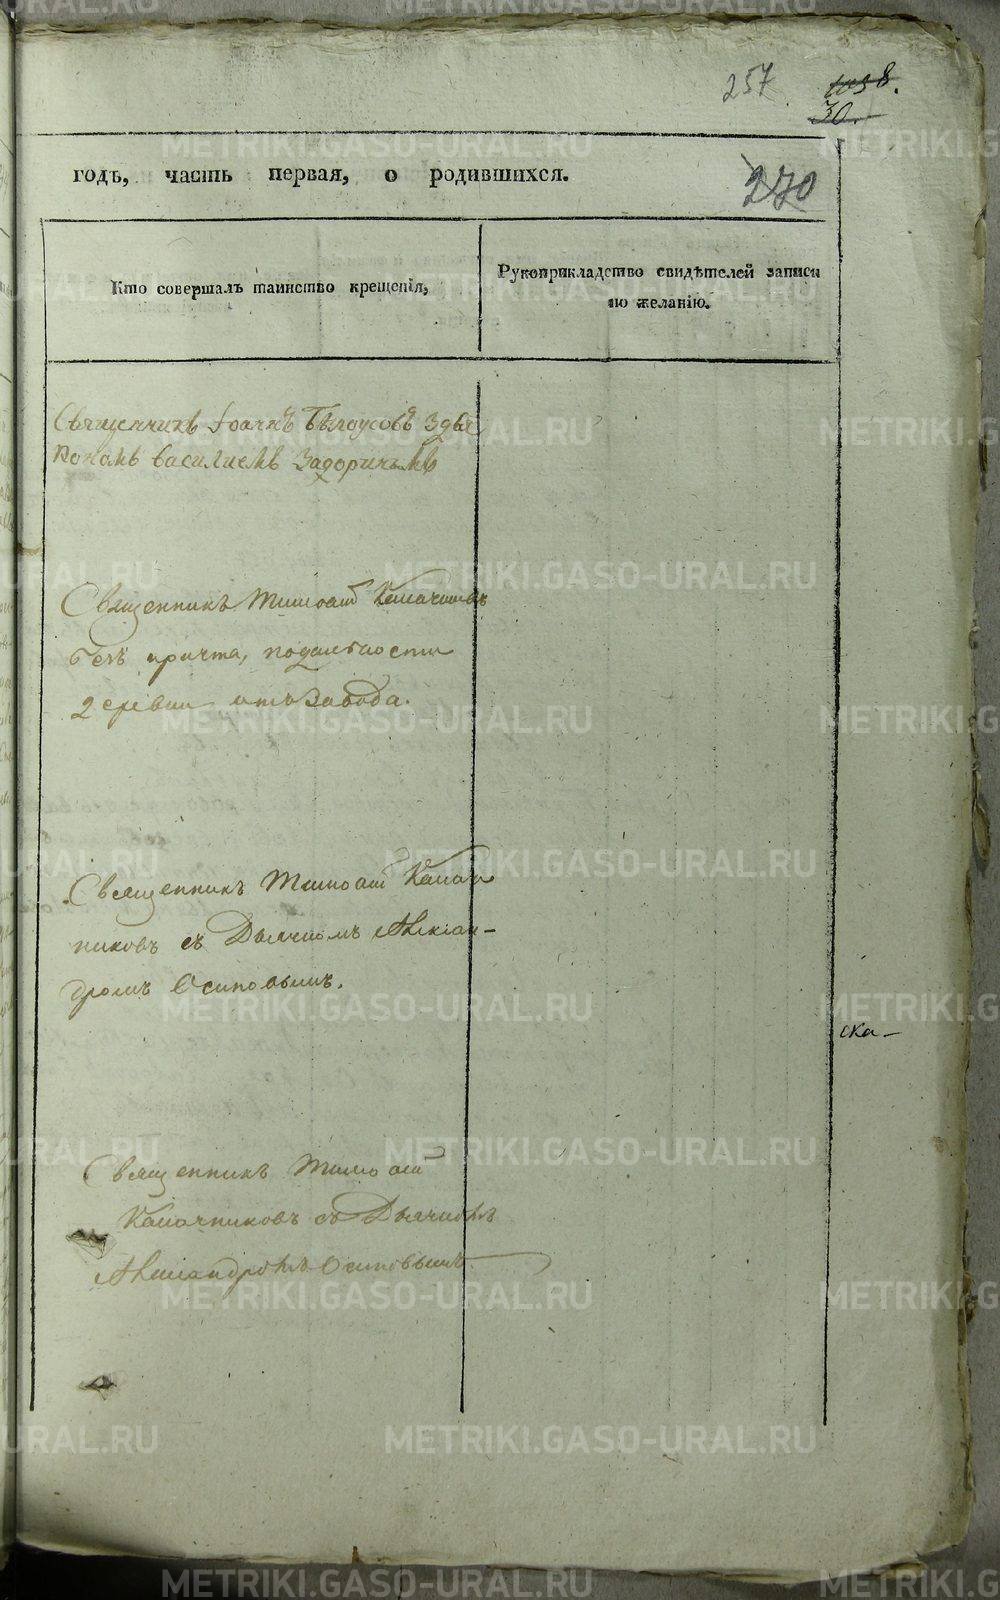 257
1038.
30.
годъ, часть первая, о родившихся.
270
Кто совершалъ таинство крещенія,
Рукоприкладство свидѣтелей записи
по желанію.
Священникъ Іоаннъ Бѣлоусовъ здья
кономъ Василиемъ Задоринымъ
Священникъ Тимоѳей Калачников
безъ причта, подальности
деревни отъ завода.
Священникъ Тимоѳей Калач
никовъ съ Дьячкомъ Алексан-
дромъ Осиповымъ.
ска-
Священникъ Тимоѳей
Калачниковъ съ Дьячкомъ
Александромъ Осиповымъ
METRIKI.GASO-URAL.RU